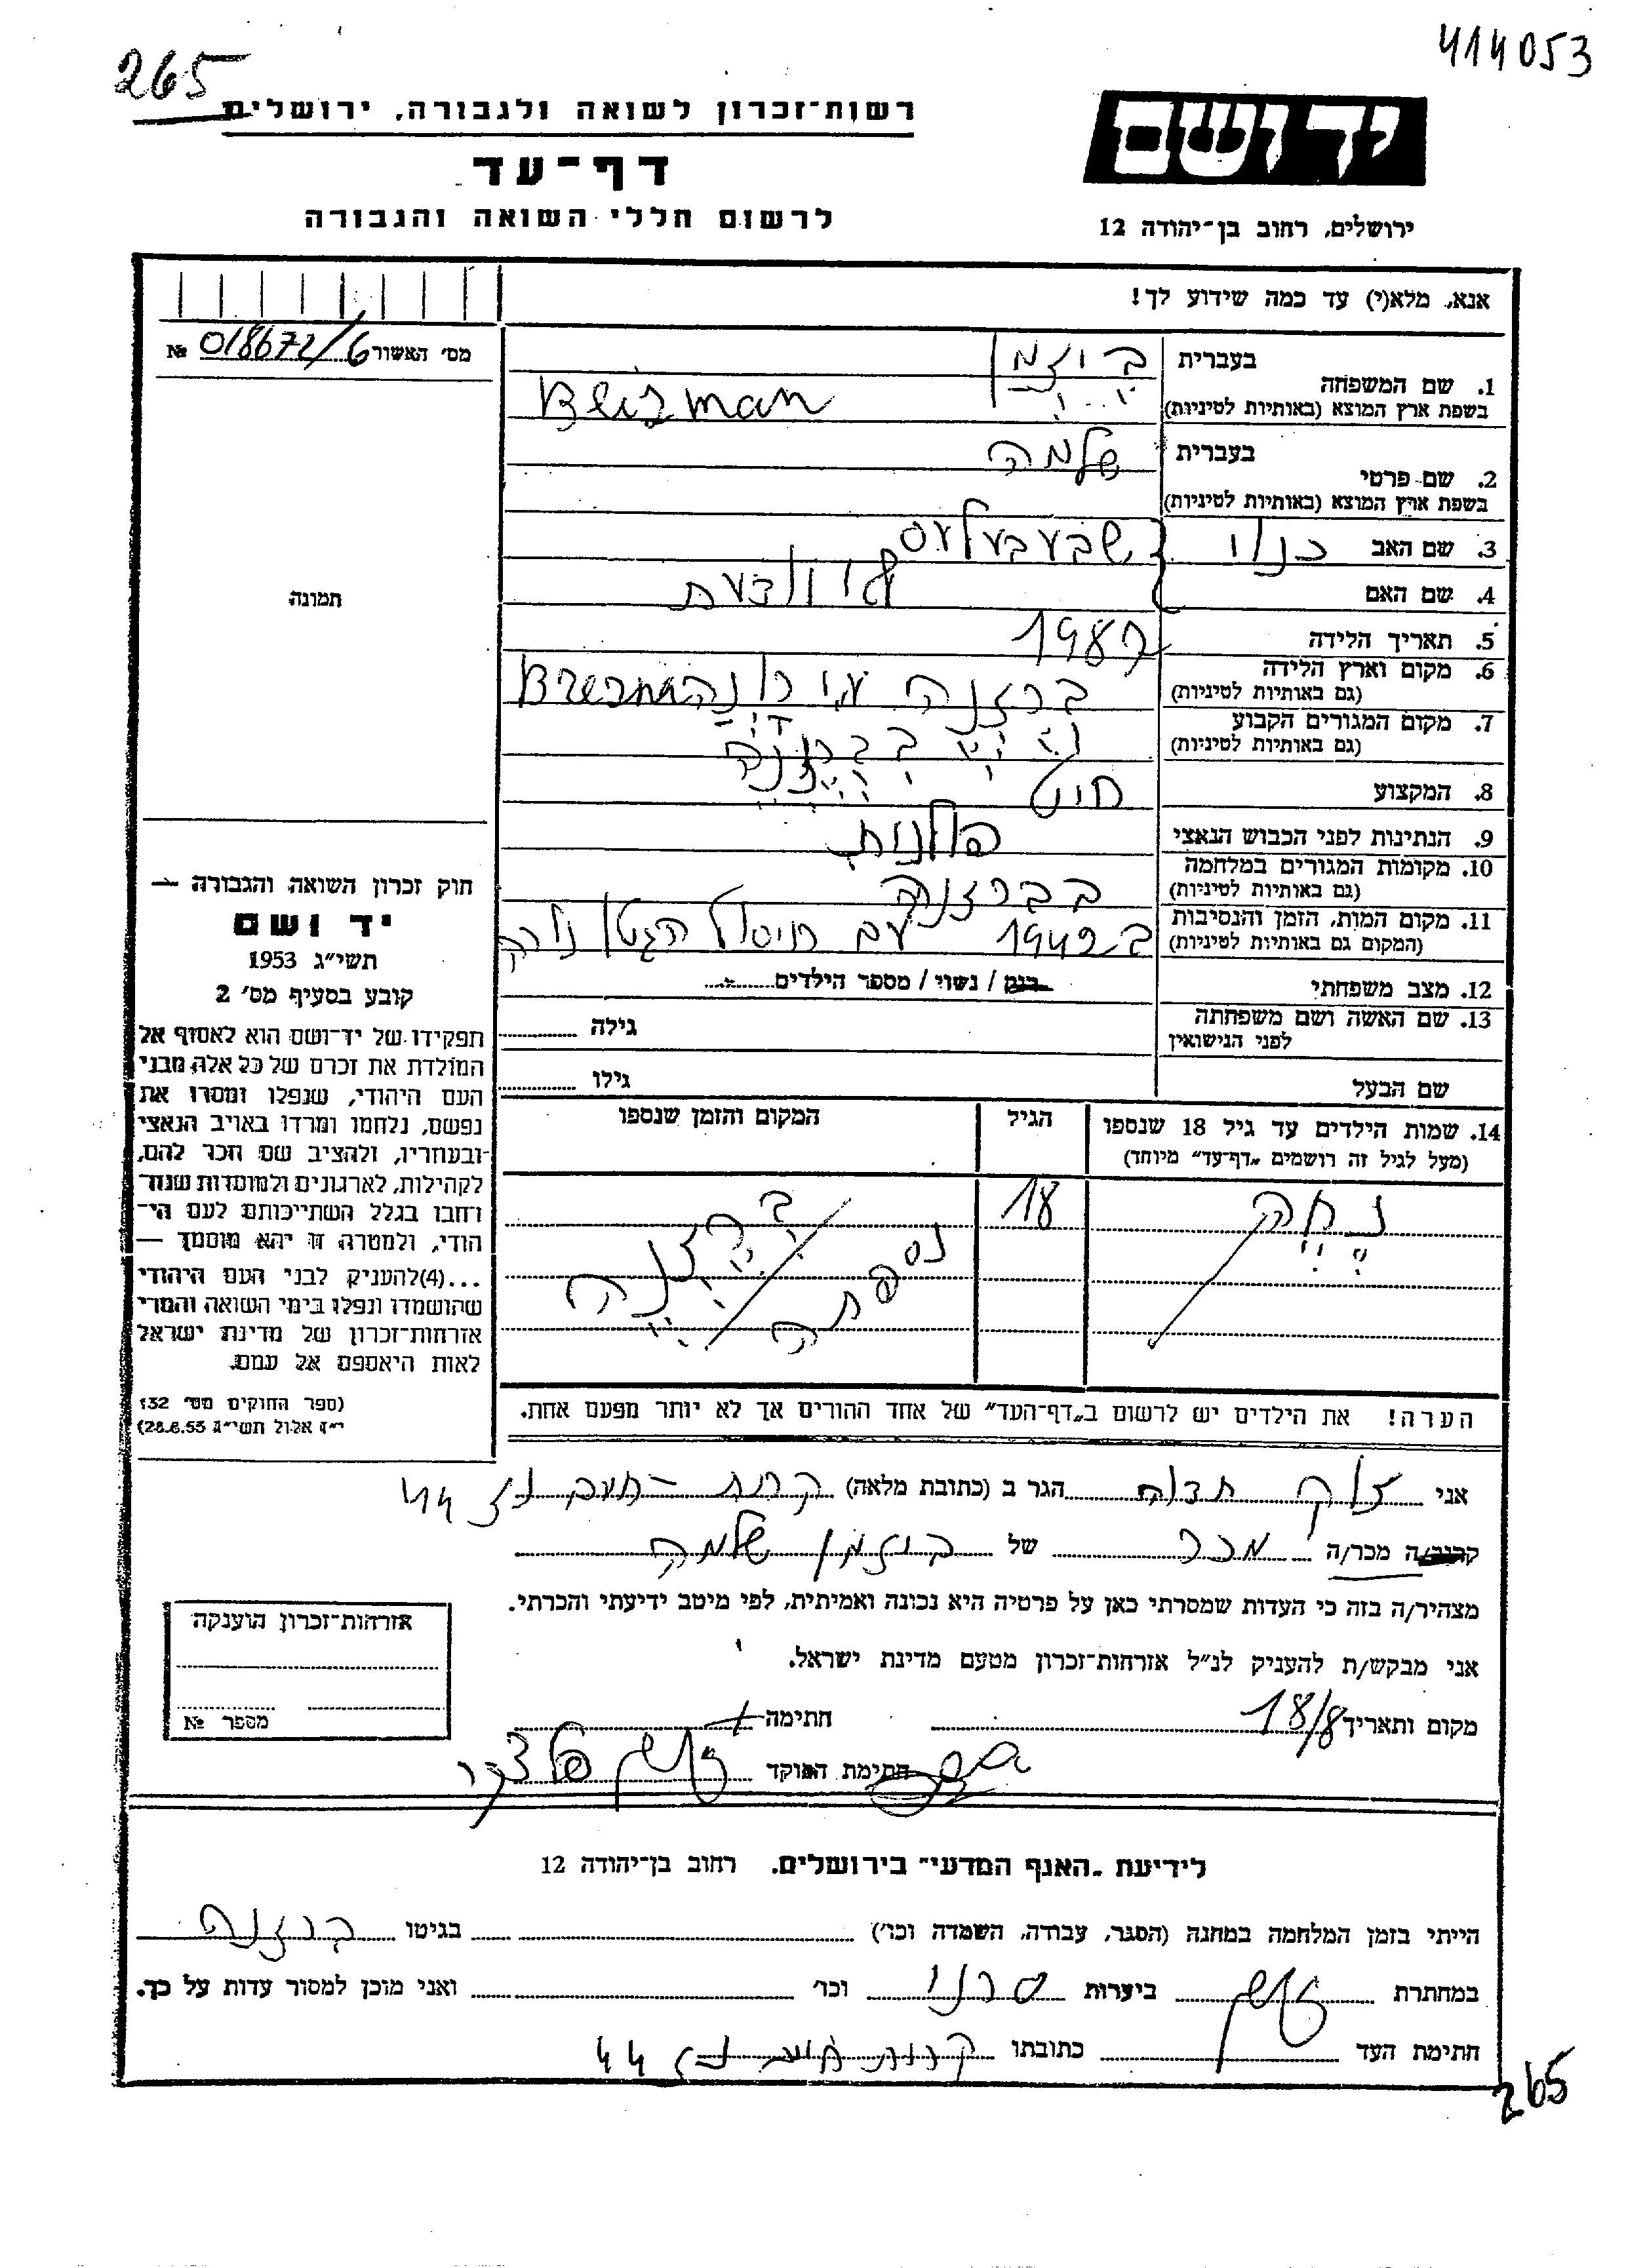 414053
265
רשות־זכרון לשואה ולגבורה, ירושלים
יד ושם
דף־עד
ירושלים, רחוב בן־יהודה 12
לרשום חללי השואה והגבורה
אנא, מלא(י) עד כמה שידוע לך!
מס׳ האשור 018672/6 №
1. שם המשפחה
בעברית
ביזמן
בשפת ארץ המוצא (באותיות לטיניות)
Beizman
2. שם פרטי
בעברית
שלמה
בשפת ארץ המוצא (באותיות לטיניות)
3. שם האב
4. שם האם
תמונה
5. תאריך הלידה
6. מקום וארץ הלידה
(גם באותיות לטיניות)
ברזנה
7. מקום המגורים הקבוע
(גם באותיות לטיניות)
8. המקצוע
חיט
9. הנתינות לפני הכבוש הנאצי
פולנית
10. מקומות המגורים במלחמה
(גם באותיות לטיניות)
בברזנה
11. מקום המות, הזמן והנסיבות
(המקום גם באותיות לטיניות)
ב 1942 עם חיסול הגטו
12. מצב משפחתי
רווק / נשוי / מספר הילדים
13. שם האשה ושם משפחתה
לפני הנישואין
גילה
שם הבעל
גילו
חוק זכרון השואה והגבורה —
יד ושם
תשי״ג 1953
קובע בסעיף מס׳ 2
תפקידו של יד־ושם הוא לאסוף אל
המולדת את זכרם של כל אלה מבני
העם היהודי, שנפלו ומסרו את
נפשם, נלחמו ומרדו באויב הנאצי
ובעוזריו, ולהציב שם וזכר להם,
לקהילות, לארגונים ולמוסדות שנח־
רבו בגלל השתייכותם לעם הי־
הודי, ולמטרה זו יהא מוסמך —
...(4)להעניק לבני העם היהודי
שהושמדו ונפלו בימי השואה והמרי
אזרחות־זכרון של מדינת ישראל
לאות היאספם אל עמם.
(ספר החוקים מס׳ 132
י״ז אלול תשי״ג 28.8.53)
14. שמות הילדים עד גיל 18 שנספו
(מעל לגיל זה רושמים „דף־עד״ מיוחד)
הגיל
המקום והזמן שנספו
18
ברזנה
נספתה
הערה! את הילדים יש לרשום ב„דף־העד״ של אחד ההורים אך לא יותר מפעם אחת.
אני
הגר ב (כתובת מלאה)
44
קרוב/ה מכר/ה מכר של ביזמן שלמה
מצהיר/ה בזה כי העדות שמסרתי כאן על פרטיה היא נכונה ואמיתית, לפי מיטב ידיעתי והכרתי.
אני מבקש/ת להעניק לנ״ל אזרחות־זכרון מטעם מדינת ישראל.
מקום ותאריך 18/8
חתימה
חתימת הפוקד
אזרחות־זכרון הוענקה
מספר №
לידיעת „האגף המדעי״ בירושלים. רחוב בן־יהודה 12
הייתי בזמן המלחמה במחנה (הסגר, עבודה, השמדה וכו׳) בגיטו ברזנה
במחתרת ביערות סרני וכו׳ ואני מוכן למסור עדות על כך.
חתימת העד כתובתו 44
265